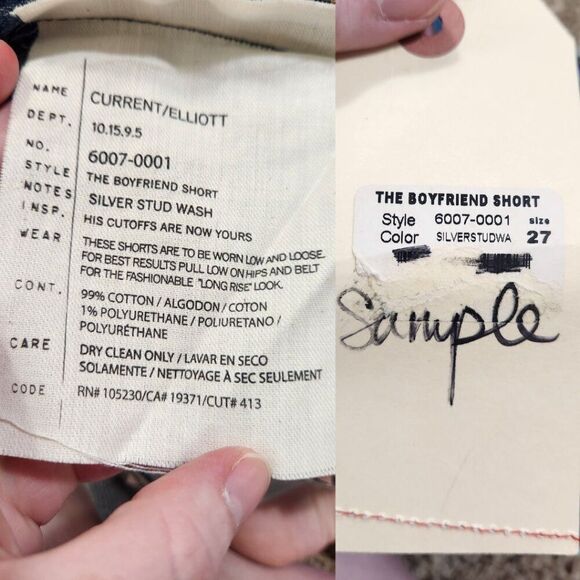 NAME CURRENT/ELLIOTT
DEPT. 10.15.9.5
NO. 6007-0001
STYLE THE BOYFRIEND SHORT
NOTES SILVER STUD WASH
INSP. HIS CUTOFFS ARE NOW YOURS
WEAR THESE SHORTS ARE TO BE WORN LOW AND LOOSE.
FOR BEST RESULTS PULL LOW ON HIPS AND BELT
FOR THE FASHIONABLE "LONG RISE" LOOK.
CONT. 99% COTTON / ALGODON / COTON
1% POLYURETHANE / POLIURETANO /
POLYURÉTHANE
CARE DRY CLEAN ONLY / LAVAR EN SECO
SOLAMENTE / NETTOYAGE À SEC SEULEMENT
CODE RN# 105230/CA# 19371/CUT# 413
THE BOYFRIEND SHORT
Style 6007-0001 size
Color SILVERSTUDWA 27
Sample